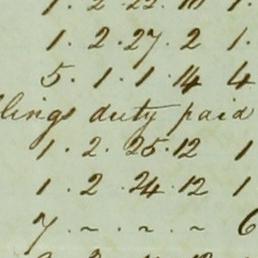 1 . 2 . 22 . 10 1 .
1 . 2 . 27 . 2 1 .
5 . 1 . 1 . 14 4
lings duty paid
1 . 2 . 25 . 12 1
1 . 2 . 24 . 12 1
7 . ~ . ~ . ~ 6